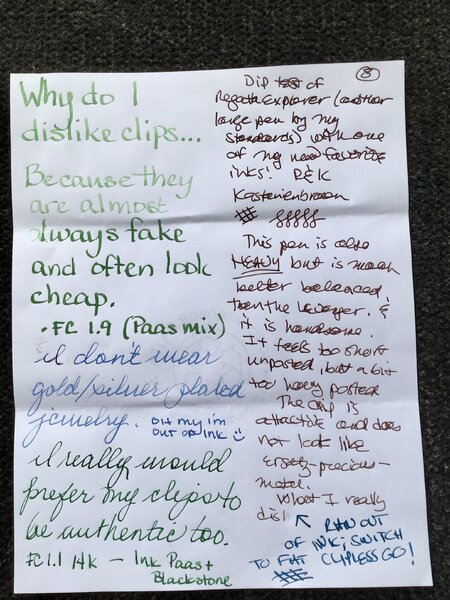 Why do I
dislike clips...
Because they
are almost
always fake
and often look
cheap.
• FC 1.9 (Paas mix)
I don't wear
gold/silver plated
jewelry. OH MY I'M
OUT OF INK
I really would
prefer my clips to
be authentic too.
FC 1.1 14K — Ink Paas +
Blackstone
8
Dip test of
Regatta Explorer (another
large pen by my
standards) with one
of my new favorite
inks! R&K
Kastanienbraun
This pen is also
HEAVY but is much
better balanced
than the &
it is handsome.
It feels too short
unposted, but a bit
too heavy posted
The clip is
attractive and does
not look like
ersatz-precious-
metal.
What I really
disl
RAN OUT
OF INK; SWITCH
TO FAT CLIPLESS GO!